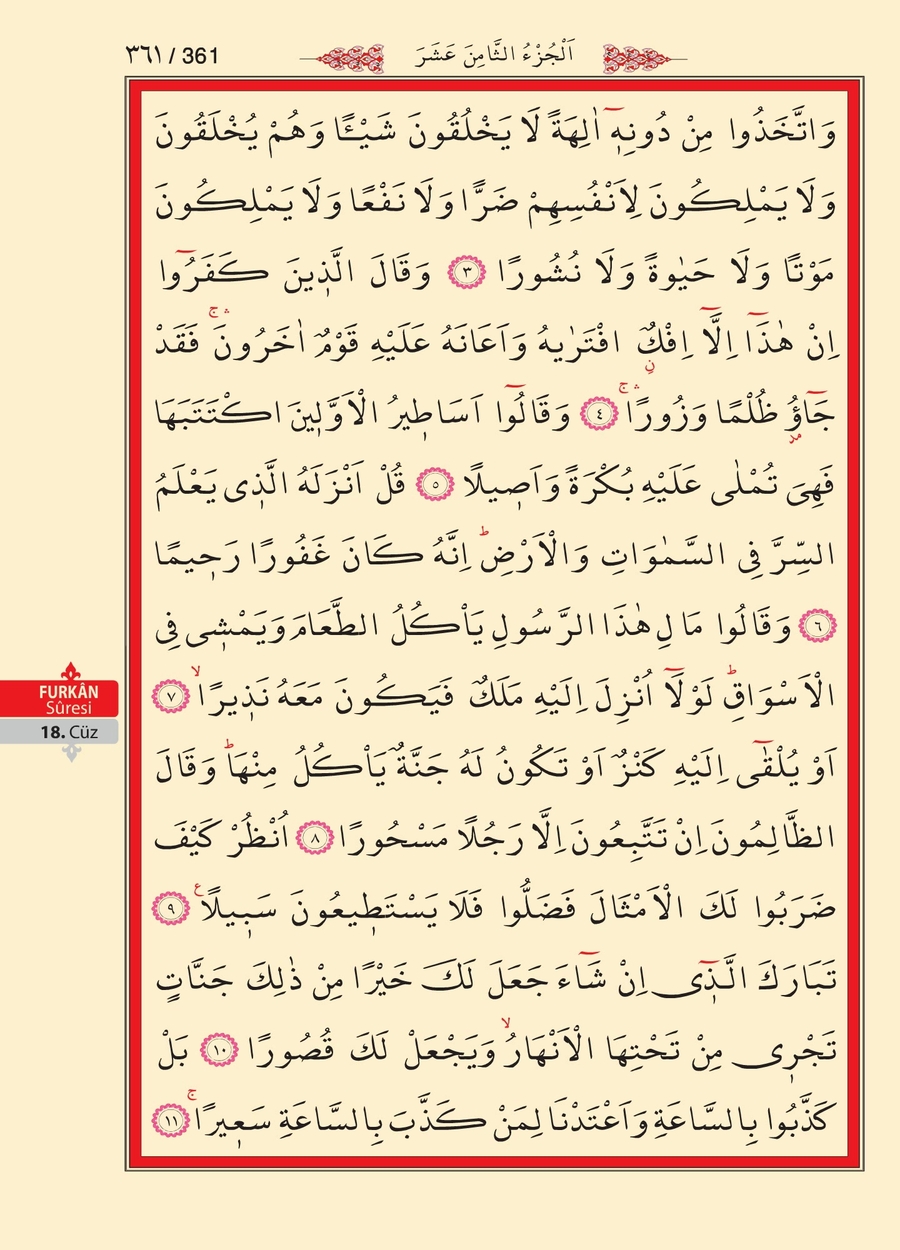 ٣٦١ / 361
اَلْجُزْءُ الثَّامِنَ عَشَرَ
وَاتَّخَذُوا مِنْ دُونِهٖٓ اٰلِهَةً لَا يَخْلُقُونَ شَيْـًٔا وَهُمْ يُخْلَقُونَ
وَلَا يَمْلِكُونَ لِاَنْفُسِهِمْ ضَرًّا وَلَا نَفْعًا وَلَا يَمْلِكُونَ
مَوْتًا وَلَا حَيٰوةً وَلَا نُشُورًا ﴿٣﴾ وَقَالَ الَّذٖينَ كَفَرُٓوا
اِنْ هٰذَٓا اِلَّٓا اِفْكٌۨ افْتَرٰيهُ وَاَعَانَهُ عَلَيْهِ قَوْمٌ اٰخَرُونَۛۚ فَقَدْ
جَٓاؤُ۫ ظُلْمًا وَزُورًاۛۚ ﴿٤﴾ وَقَالُٓوا اَسَاطٖيرُ الْاَوَّلٖينَ اكْتَتَبَهَا
فَهِىَ تُمْلٰى عَلَيْهِ بُكْرَةً وَاَصٖيلًا ﴿٥﴾ قُلْ اَنْزَلَهُ الَّذٖى يَعْلَمُ
السِّرَّ فِى السَّمٰوَاتِ وَالْاَرْضِؕ اِنَّهُ كَانَ غَفُورًا رَحٖيمًا
﴿٦﴾ وَقَالُوا مَالِ هٰذَا الرَّسُولِ يَاْكُلُ الطَّعَامَ وَيَمْشٖى فِى
الْاَسْوَاقِؕ لَوْلَٓا اُنْزِلَ اِلَيْهِ مَلَكٌ فَيَكُونَ مَعَهُ نَذٖيرًاۙ ﴿٧﴾
اَوْ يُلْقٰٓى اِلَيْهِ كَنْزٌ اَوْ تَكُونُ لَهُ جَنَّةٌ يَاْكُلُ مِنْهَاؕ وَقَالَ
الظَّالِمُونَ اِنْ تَتَّبِعُونَ اِلَّا رَجُلًا مَسْحُورًا ﴿٨﴾ اُنْظُرْ كَيْفَ
ضَرَبُوا لَكَ الْاَمْثَالَ فَضَلُّوا فَلَا يَسْتَطٖيعُونَ سَبٖيلًاࣖ ﴿٩﴾
تَبَارَكَ الَّذٖٓى اِنْ شَٓاءَ جَعَلَ لَكَ خَيْرًا مِنْ ذٰلِكَ جَنَّاتٍ
تَجْرٖى مِنْ تَحْتِهَا الْاَنْهَارُۙ وَيَجْعَلْ لَكَ قُصُورًا ﴿١٠﴾ بَلْ
كَذَّبُوا بِالسَّاعَةِ وَاَعْتَدْنَا لِمَنْ كَذَّبَ بِالسَّاعَةِ سَعٖيرًاۚ ﴿١١﴾
FURKÂN
Sûresi
18. Cüz